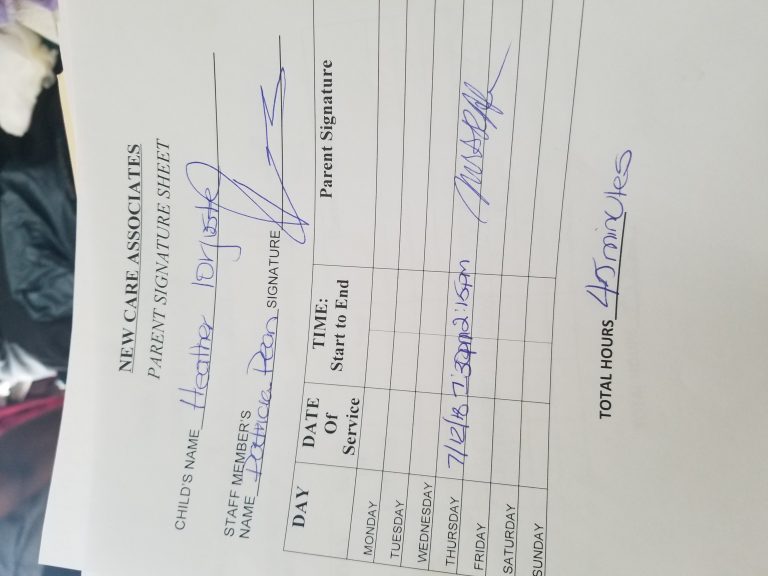 NEW CARE ASSOCIATES
PARENT SIGNATURE SHEET
CHILD'S NAME Heather
STAFF MEMBER'S
NAME Patricia Dean SIGNATURE
DAY DATE Of Service TIME: Start to End Parent Signature
MONDAY
TUESDAY
WEDNESDAY
THURSDAY 7/12/18 1:30pm 2:15pm
FRIDAY
SATURDAY
SUNDAY
TOTAL HOURS 45 minutes